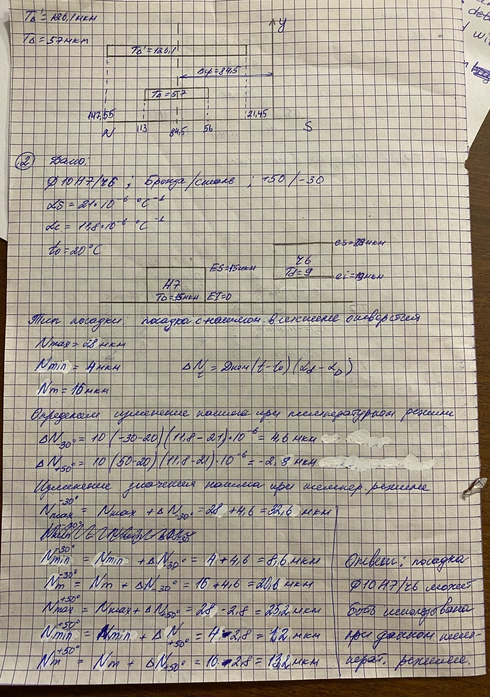 TD' = 120,1 мкм
TD = 57 мкм
y
TD' = 120,1
Δср = 84,5
TD = 57
147,55 113 84,5 56 21,45
N S
② Дано:
Ф 10 H7/r6 ; Бронза/сталь ; +50/-30
αS = 21·10⁻⁶ °C⁻¹
αс = 11,8·10⁻⁶ °C⁻¹
t₀ = 20°C
es=28мкм
r6
Td = 9
ei=19мкм
ES=15мкм
H7
TD=15мкм EI=0
Тип посадки: посадка с натягом в системе отверстия
Nmax = 28 мкм
Nmin = 4 мкм ΔNt = Dном (t-t₀)(αd - αD)
Nm = 16 мкм
Определяем изменение натяга при температурном режиме
ΔN-30° = 10 (-30-20)(11,8-21)·10⁻⁶ = 4,6 мкм
ΔN+50° = 10 (50-20)(11,8-21)·10⁻⁶ = -2,8 мкм
Изменение значения натяга при темпер. режиме
Nmax⁻³⁰° = Nmax + ΔN-30° = 28 + 4,6 = 32,6 мкм
Nmin⁻³⁰° = Nmin + ΔN-30° = 4 + 4,6 = 8,6 мкм
Nm⁻³⁰° = Nm + ΔN-30° = 16 + 4,6 = 20,6 мкм
Nmax⁺⁵⁰° = Nmax + ΔN+50° = 28 - 2,8 = 25,2 мкм
Nmin⁺⁵⁰° = Nmin + ΔN+50° = 4 - 2,8 = 1,2 мкм
Nm⁺⁵⁰° = Nm + ΔN+50° = 16 - 2,8 = 13,2 мкм
Ответ: посадка
Ф10 H7/r6 может
быть использована
при данном темп-
ерат. режиме.